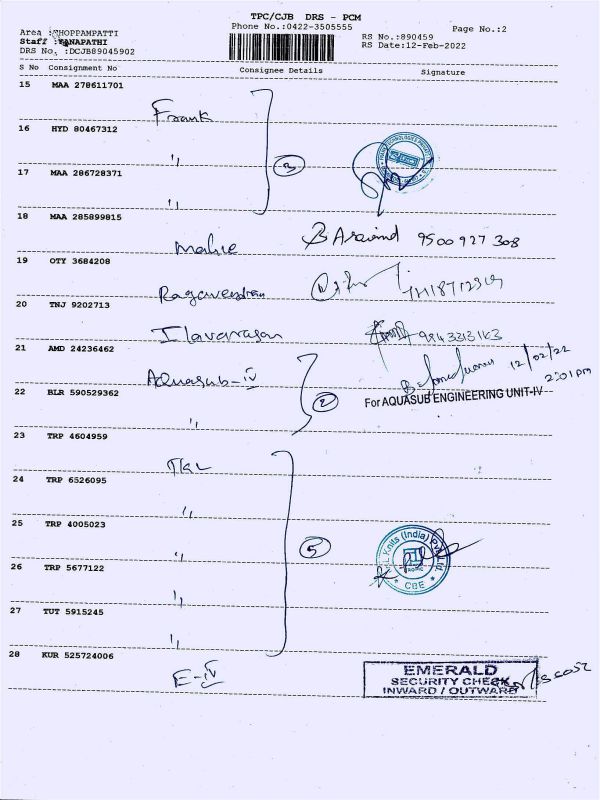 TPC/CJB DRS - PCM
Phone No.:0422-3505555
Page No.:2
Area :CHOPPAMPATTI
RS No.:890459
Staff :GANAPATHI
RS Date:12-Feb-2022
DRS No. :DCJB89045902
S No Consignment No Consignee Details Signature
15 MAA 278611701
Frank
16 HYD 80467312
"
3
17 MAA 286728371
"
18 MAA 285899815
B Aravind 9500927308
19 OTY 3684208
20 TNJ 9202713
Ilavarasan
21 AMD 24236462
12/02/22
2:01 pm
Aquasub-IV
2
22 BLR 590529362
For AQUASUB ENGINEERING UNIT-IV
"
23 TRP 4604959
24 TRP 6526095
"
25 TRP 4005023
Knits (India) Pvt. Ltd.
5
CBE
"
26 TRP 5677122
"
27 TUT 5915245
"
28 KUR 525724006
E-IV
EMERALD
SECURITY CHECK
INWARD / OUTWARD